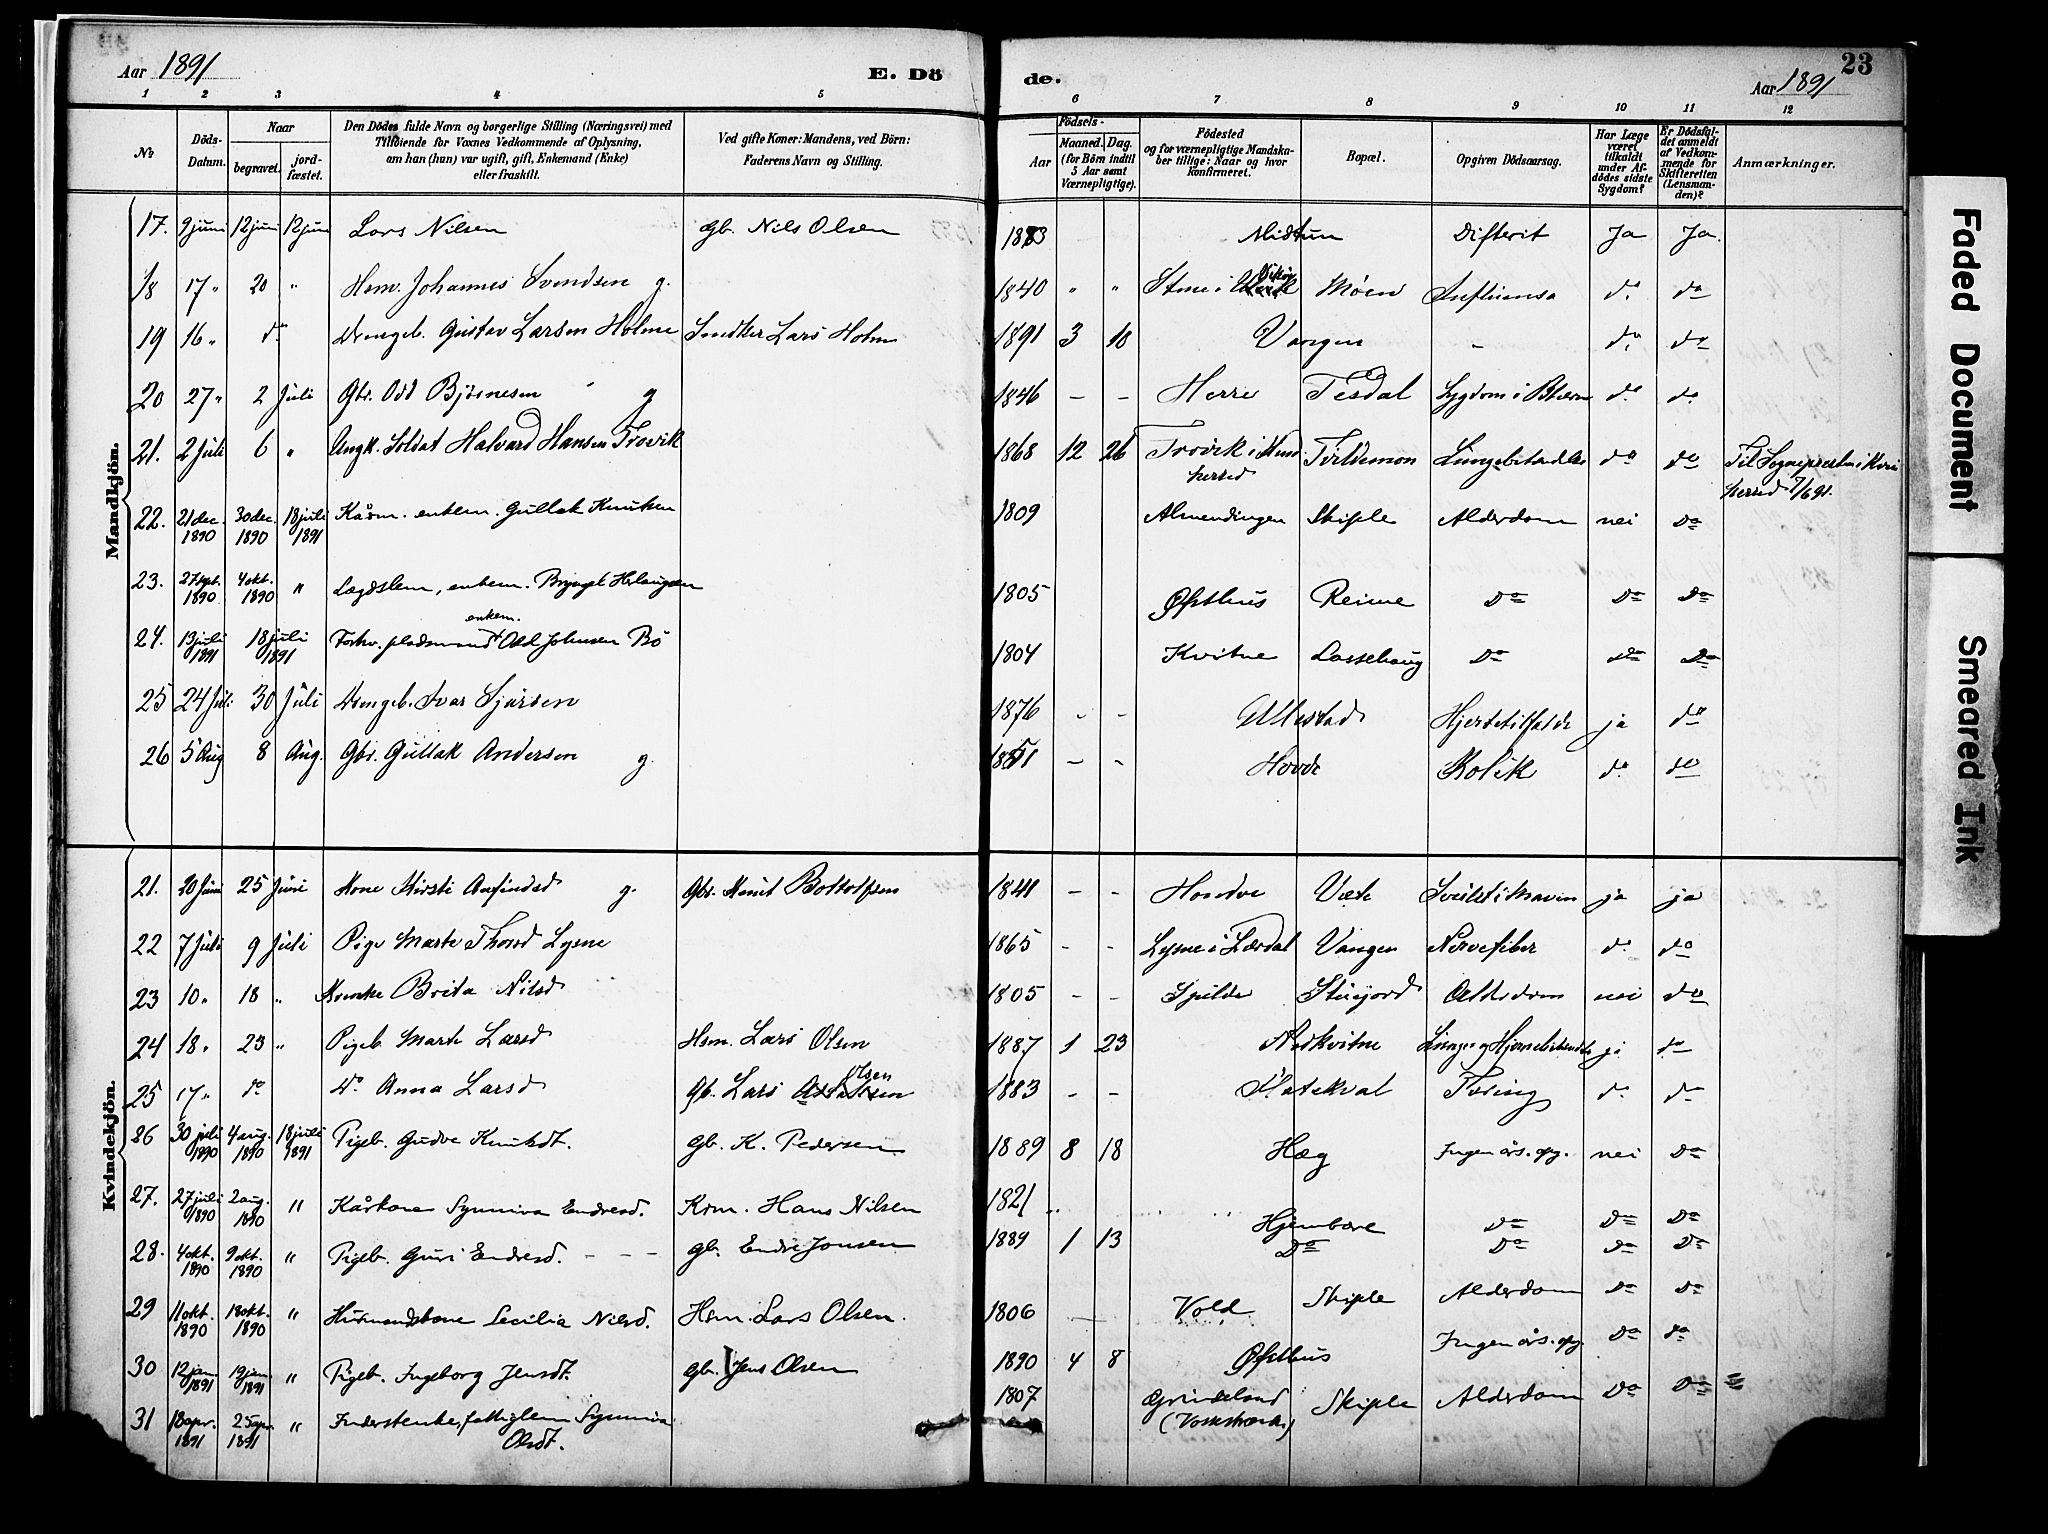 Aar 1891
E. Dö
de.
Aar 1891
23
1 2 3 4 5 6 7 8 9 10 11 12
No
Döds-Datum.
Naar
begravet.
jord-fæstet.
Den Dödes fulde Navn og borgerlige Stilling (Næringsvei) med
Tilföiende for Voxnes Vedkommende af Oplysning,
om han (hun) var ugift, gift, Enkemand (Enke)
eller fraskilt.
Ved gifte Koner: Mandens, ved Börn:
Faderens Navn og Stilling.
Födsels-
Aar
Maaned. Dag.
(for Börn indtil
5 Aar samt
Værnepligtige).
Födested
og for værnepligtige Mandska-
ber tillige: Naar og hvor
konfirmeret.
Bopæl.
Opgiven Dödsaarsag.
Har Læge
været
tilkaldt
under Af-
dödes sidste
Sygdom?
Er Dödsfal-
det anmeldt
af Vedkom-
mende for
Skifteretten
(Lensman-
den)?
Anmærkninger.
Mandkjön.
17. 9 juni 12 juni 12 juni Lars Nilsen gb. Nils Olsen 1883 Midtun Difterit Ja Ja.
18 17 " 20 " Hsm. Johannes Svendsen g. 1840 " " Stene i Vikør Møen Influensa do do
19 16 " do Drengeb. Gustav Larsen Holme Snedker Lars Holm 1891 3 18 Vangen - do do
20 27 " 2 Juli Gbr. Odd Bjørnesen g 1846 - - Herre Tesdal Sygdom i Blæren do do
21. 2 Juli 6 " Ungk. Soldat Halvard Hansen Trovik 1868 12 26 Trovik i Kvind herred Tvildemon Lungebetændelse do do Til Sogneprestn i Kvin herred 7/6 91.
22. 21 dec. 1890 30 dec. 1890 18 juli 1891 Kårm. enkem. Gullak Knutsen 1809 Almendingen Skiple Alderdom nei do
23. 27 sept. 1890 4 okt. 1890 " Lægdslem, enkem. Bryngel Helaugsen 1805 Østhus Reime do do do
24. 13 juli 1891 18 juli 1891 Forhv. pladsmand enkem. Odd Johnsen Bö 1804 Kvitne Lassehaug do do do
25 24 Juli 30 Juli Drengeb. Ivar Sjursen 1876 - - Ullestad Hjertetilfælde ja do
26 5 Aug 8 Aug. Gbr. Gullak Andersen g. 1851 - - Hovde Kolik do do
Kvindekjön.
21. 20 Juni 25 Juni Kone Kirsti Anfindsd g. Gbr. Knut Bottolfsen 1841 - - Hondve Væte Sviilst i Maven ja ja
22 7 Juli 9 Juli Pige Marte Thorsd Lysne 1865 - - Lysne i Lærdal Vangen Nervefiber do do
23 10 " 18 " Kvinke Brita Nilsd 1805 - - Spilde Stuejord Alderdom nei do
24 18 " 23 " Pigeb. Marte Larsd Hsm. Lars Olsen 1887 1 23 Nedkvitne Lunge og Hjernebetændelse ja do
25 17 " do do Anna Larsd Gb. Lars Olsen 1883 - - Flatekval Tæring do do
26 30 juli 1890 4 aug. 1890 18 juli 1891 Pigeb. Gudve Knutsdt. gb. K. Pedersen 1889 8 18 Hæg Ingen års. opg. nei do
27. 27 juli 1890 2 aug. 1890 " Kårkone Synniva Endresd. Krm. Hans Nilsen 1821 Hjembære do do do
28. 4 okt. 1890 9 okt. 1890 " Pigeb. Guri Endresd. gb. Endre Jonsen 1889 1 13 do do do do
29 11 okt. 1890 18 okt. 1890 " Husmandskone Cecilia Nilsd. Hsm. Lars Olsen. 1806 Vold Skiple Alderdom do do
30 12 jan. 1891 19 jan. 1891 " Pigeb. Ingeborg Jensdt. gb. Jens Olsen 1890 4 8 Østhus Ingen års. opg do do
31 18 apr. 1891 25 apr. 1891 " Inderstenke, fattiglem Synniva Olsdt. 1807 Grindeland (Vossestrand) Skiple Alderdom do do
Faded Document
Smeared Ink